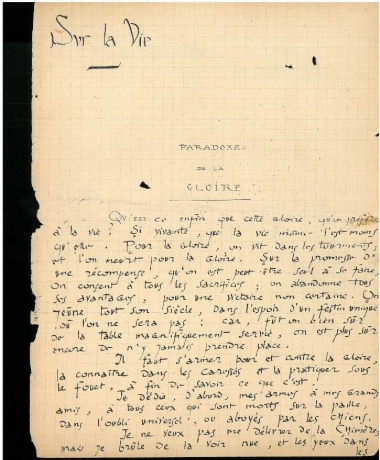 Sur la Vie
PARADOXE
DE LA
GLOIRE
Qu'est ce enfin que cette Gloire, qu'on préfère
à la vie ? Si vivante, que la vie même l'est moins
qu'elle. Pour la Gloire, on vit dans les tourments;
et l'on meurt pour la Gloire. Sur la promesse d'
une récompense, qu'on est peut être seul à se faire,
on consent à tous les sacrifices; on abandonne tous
ses avantages, pour une victoire non certaine. On
jeûne tout son siècle, dans l'espoir d'un festin unique
où l'on ne sera pas : car, fût on bien sûr
de la table magnifiquement servie, on est plus sûr
encore de n'y jamais prendre place.
Il faut s'armer pour et contre la Gloire,
la connaître dans les caresses et la pratiquer sous
le fouet, à fin de savoir ce que c'est.
Je dédie, d'abord, mes armes à mes grands
amis, à tous ceux qui sont morts sur la paille,
dans l'oubli universel, ou aboyés par les chiens.
Je ne veux pas me délivrer de la Chimère,
mais je brûle de la voir nue, et les yeux dans
les